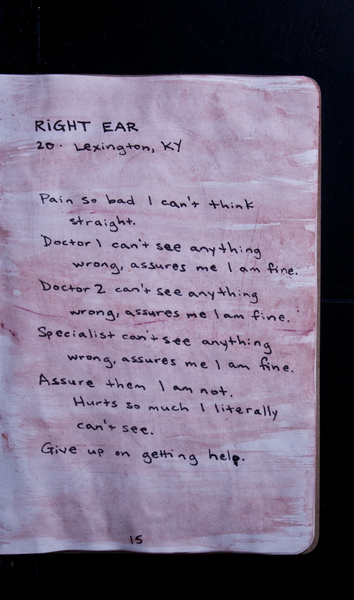 RIGHT EAR
20. Lexington, KY
Pain so bad I can't think
straight.
Doctor 1 can't see anything
wrong, assures me I am fine.
Doctor 2 can't see anything
wrong, assures me I am fine.
Specialist can't see anything
wrong, assures me I am fine.
Assure them I am not.
Hurts so much I literally
can't see.
Give up on getting help.
15